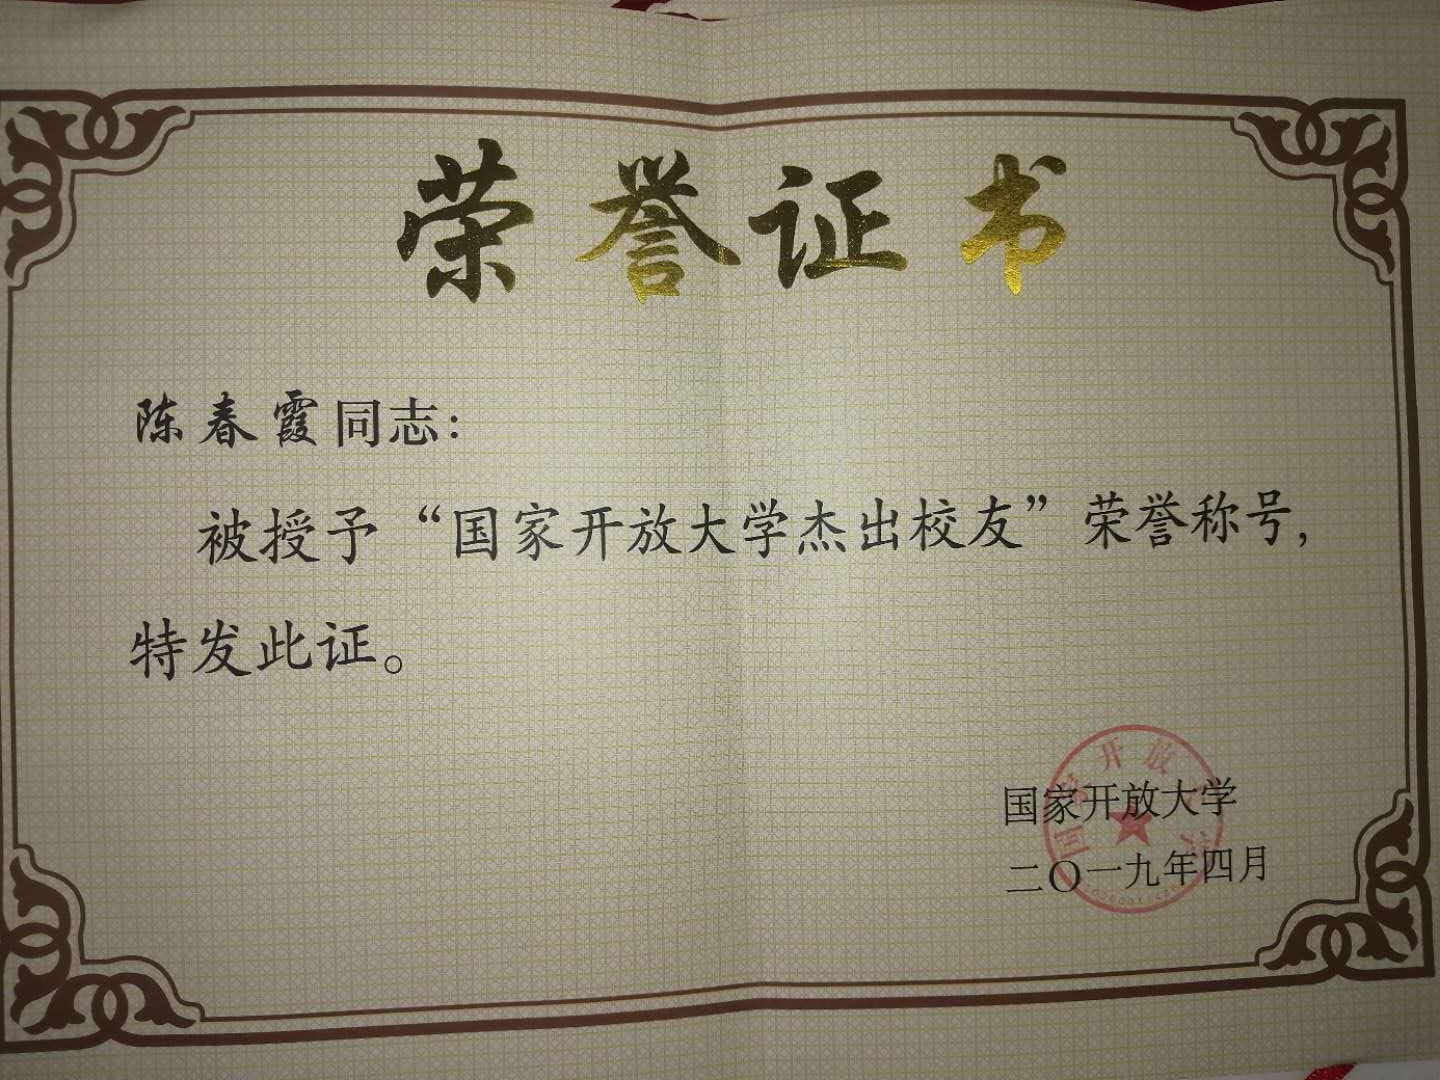 荣誉证书
陈春霞同志：
被授予“国家开放大学杰出校友”荣誉称号，
特发此证。
国家开放大学
二〇一九年四月
国家开放大学